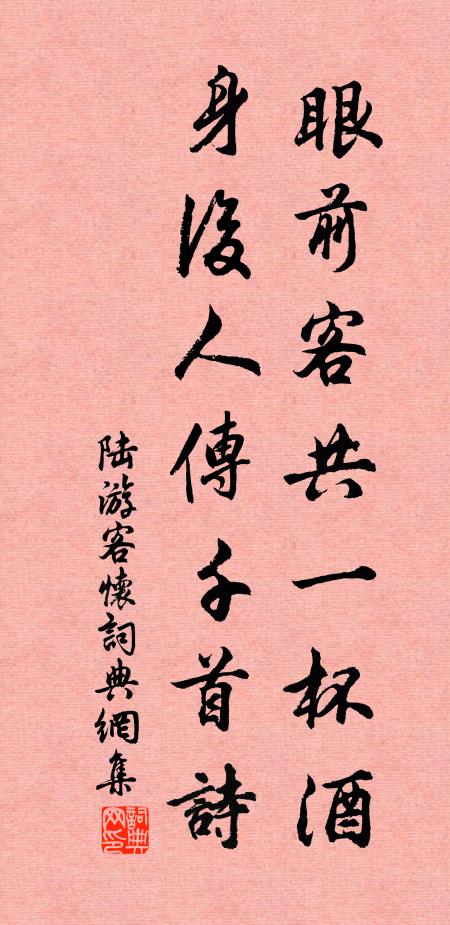 眼前客共一杯酒
身後人傳千首詩
陆游客懷詞典網集
詞典
网印